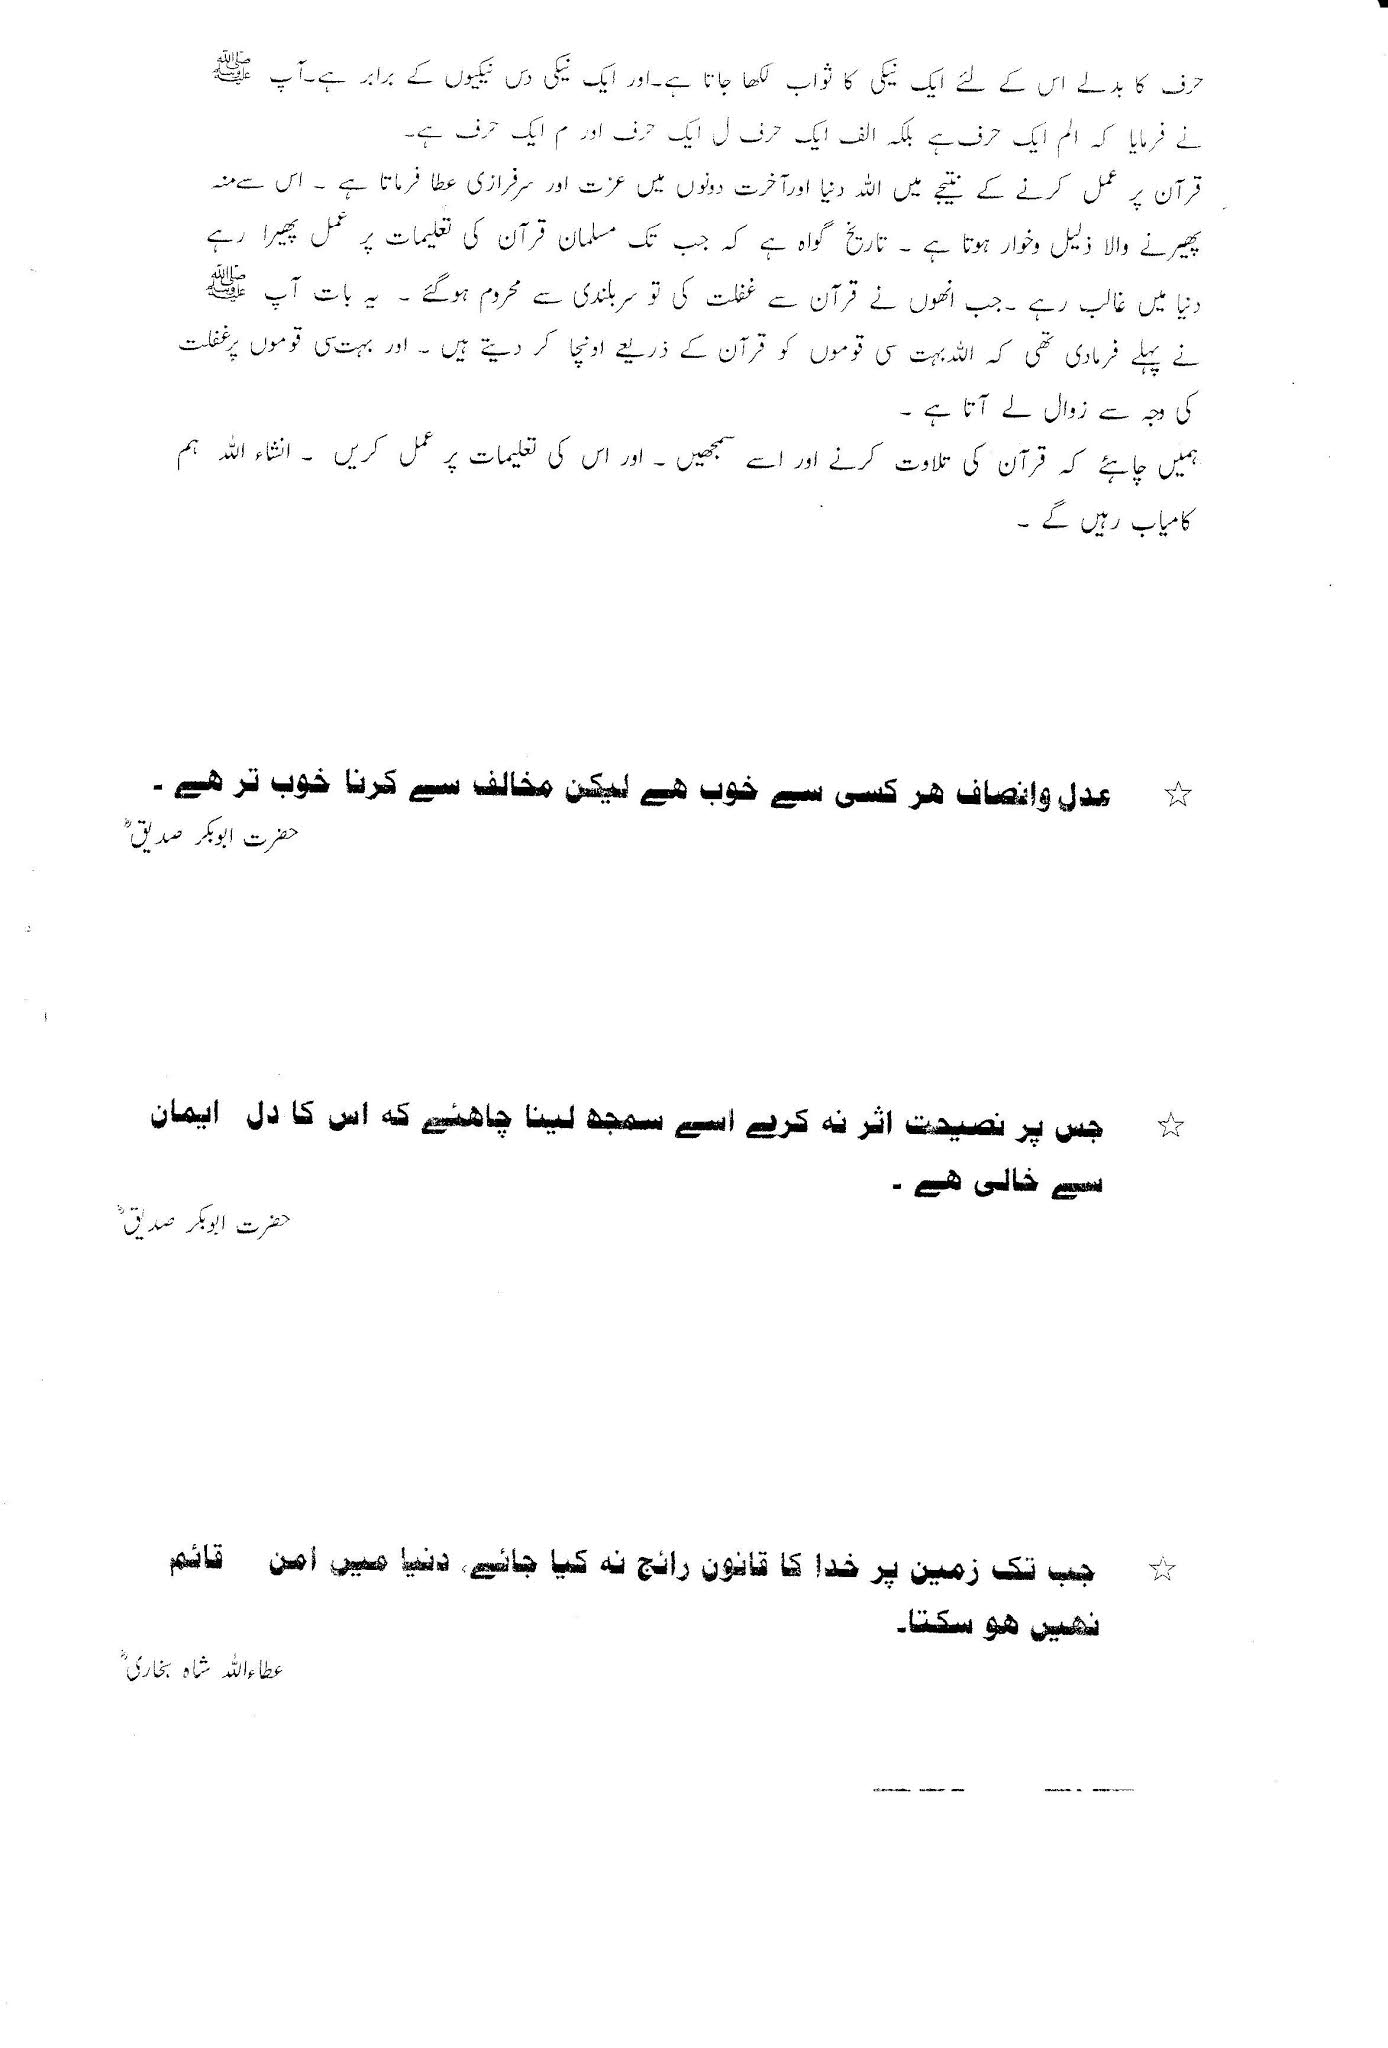 حرف کا بدلے اس کے لئے ایک نیکی کا ثواب لکھا جاتا ہے۔اور ایک نیکی دس نیکیوں کے برابر ہے۔آپ ﷺ
نے فرمایا کہ الم ایک حرف ہے بلکہ الف ایک حرف ل ایک حرف اور م ایک حرف ہے۔
قرآن پر عمل کرنے کے نتیجے میں اللہ دنیا اورآخرت دونوں میں عزت اور سرفرازی عطا فرماتا ہے ۔ اس سےمنہ
پھیرنے والا ذلیل وخوار ہوتا ہے ۔ تاریخ گواہ ہے کہ جب تک مسلمان قرآن کی تعلیمات پر عمل پھیرا رہے
دنیا میں غالب رہے ۔جب انھوں نے قرآن سے غفلت کی تو سربلندی سے محروم ہوگئے ۔ یہ بات آپ ﷺ
نے پہلے فرمادی تھی کہ اللہ بہت سی قوموں کو قرآن کے ذریعے اونچا کر دیتے ہیں ۔ اور بہت سی قوموں پرغفلت
کی وجہ سے زوال لے آتا ہے ۔
ہمیں چاہئے کہ قرآن کی تلاوت کرنے اور اسے سمجھیں ۔ اور اس کی تعلیمات پر عمل کریں ۔ انشاء اللہ ہم
کامیاب رہیں گے ۔
☆ عدل وانصاف ھر کسی سے خوب ھے لیکن مخالف سے کرنا خوب تر ھے ۔
حضرت ابوبکر صدیقؓ
☆ جس پر نصیحت اثر نہ کرے اسے سمجھ لینا چاھئے کہ اس کا دل ایمان
سے خالی ھے ۔
حضرت ابوبکر صدیقؓ
☆ جب تک زمین پر خدا کا قانون رائج نہ کیا جائے، دنیا میں امن قائم
نھیں ھو سکتا۔
عطاءاللہ شاہ بخاریؒ